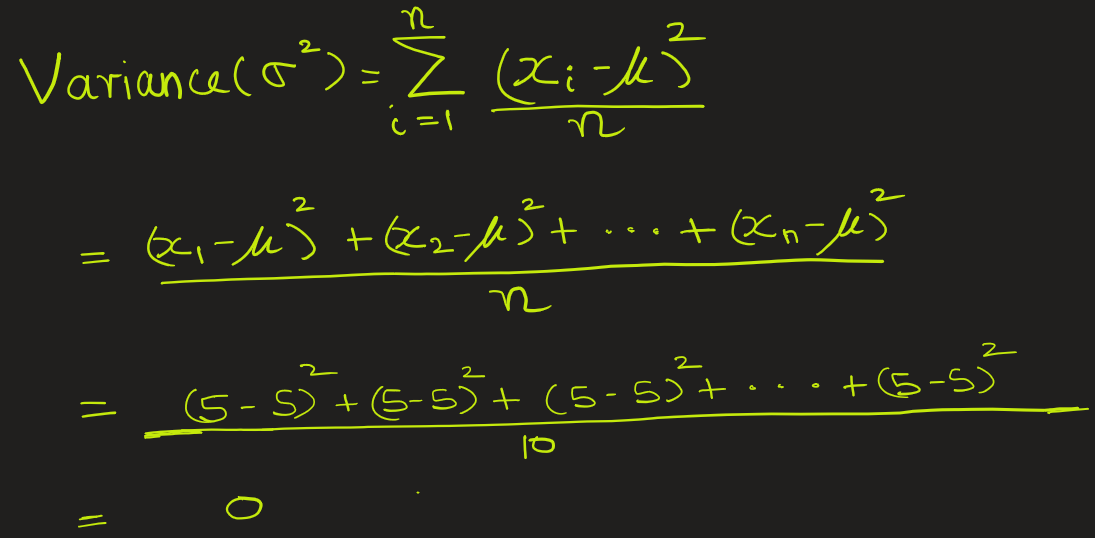 Variance(σ²) = ∑ⁿᵢ₌₁ (xᵢ-μ)² / n
= (x₁-μ)² + (x₂-μ)² + ... + (xₙ-μ)² / n
= (5-5)² + (5-5)² + (5-5)² + .... + (5-5)² / 10
= 0